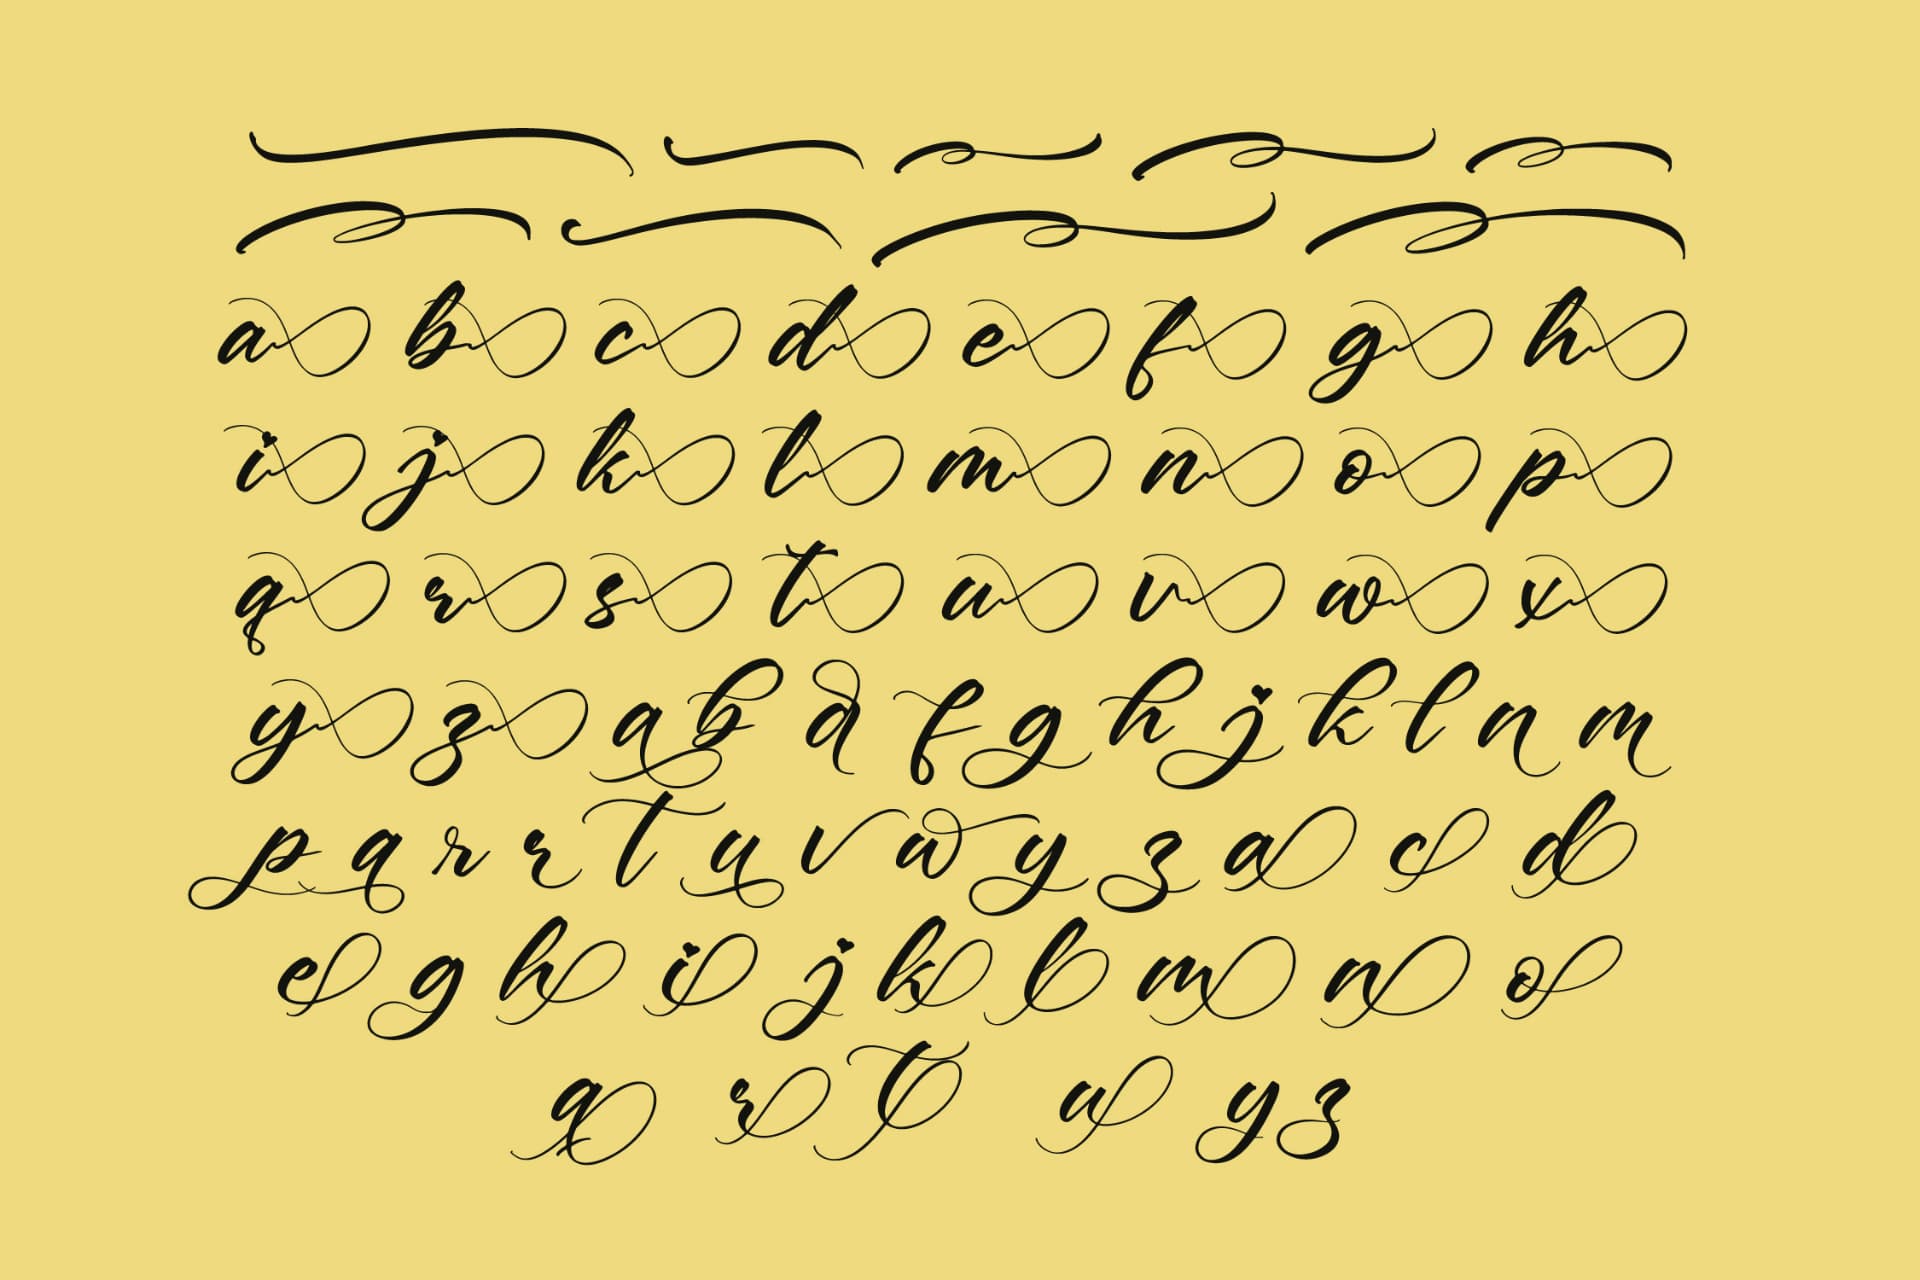 a b c d e f g h
i j k l m n o p
q r s t u v w x
y z a b d f g h j k l n m
p q r r t u v w y z a c d
e g h i j k l m n o
q r t u y z